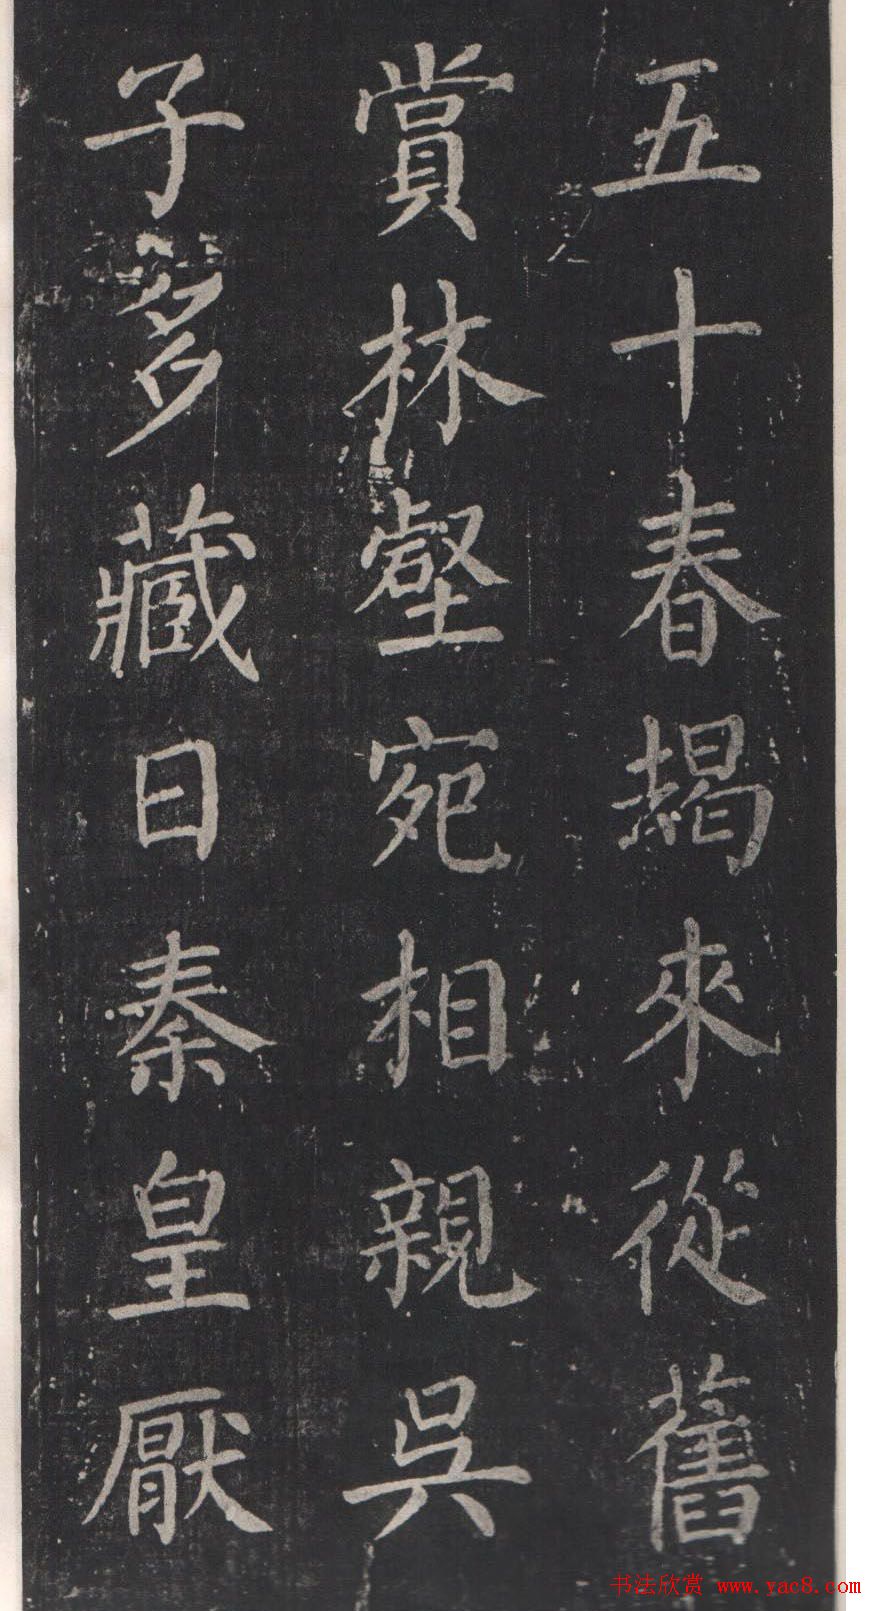 五十春朅來從舊
賞林壑宛相親吳
子多藏日秦皇厭
书法欣赏 www.yac8.com